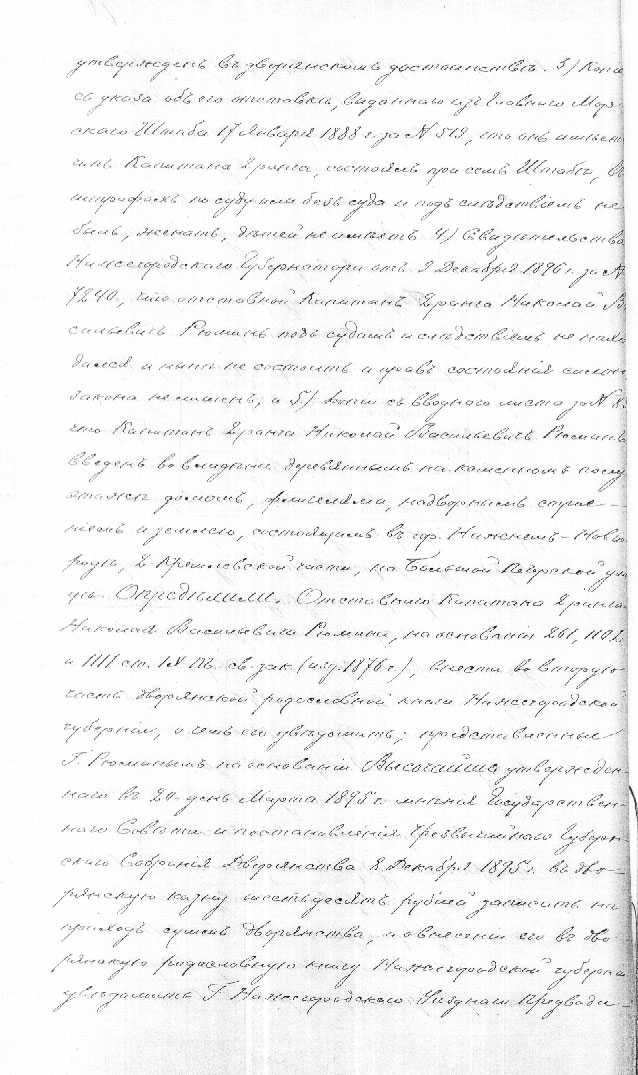 утвержденъ въ дворянскомъ достоинствѣ. 3) Копі
съ указа объ его отставкѣ, выданнаго изъ Главнаго Мор
скаго Штаба 17 Января 1888 г. за № 519, что онъ имѣет
чинъ Капитана 2 ранга, состоялъ при семъ Штабѣ, въ
штрафахъ по суду или безъ суда и подъ слѣдствіемъ не
былъ, женатъ, дѣтей не имѣетъ. 4) Свидѣтельство
Нижегородскаго Губернатора отъ 9 Декабря 1896 г. за №
7240, что отставной Капитанъ 2 ранга Николай Ва
сильевичъ Рюминъ подъ судомъ и слѣдствіемъ не нахо
дился и нынѣ не состоитъ и правъ состоянія силою
закона не лишенъ; и 5) Копіи съ вводнаго листа за № 8
что Капитанъ 2 ранга Николай Васильевичъ Рюминъ
введенъ во владѣніе деревяннымъ на каменномъ полу
этажѣ домомъ, флигелями, надворнымъ строе-
ніемъ и землею, состоящимъ въ гор. Нижнемъ-Новго
родѣ, 2 Кремлевской части, на Большой Печерской ул
цѣ. Опредѣлили: Отставнаго Капитана 2 ранга
Николая Васильевича Рюмина, на основаніи 261, 1102
и 1111 ст. IX т. св. зак. (изд. 1876 г.), внести во вторую
часть дворянской родословной книги Нижегородской
губерніи, о чемъ его увѣдомить; представленные
Г. Рюминымъ на основаніи Высочайше утвержден-
наго въ 20 день Марта 1895 г. мнѣнія Государствен-
наго Совѣта и постановленія Чрезвычайнаго Губерн-
скаго Собранія Дворянства 8 Декабря 1895 г. въ дво-
рянскую казну шестьдесятъ рублей записать на
приходъ суммъ дворянства, и о внесеніи его въ дво
рянскую родословную книгу Нижегородской губерніи
увѣдомить Г. Нижегородскаго Уѣзднаго Предводи-